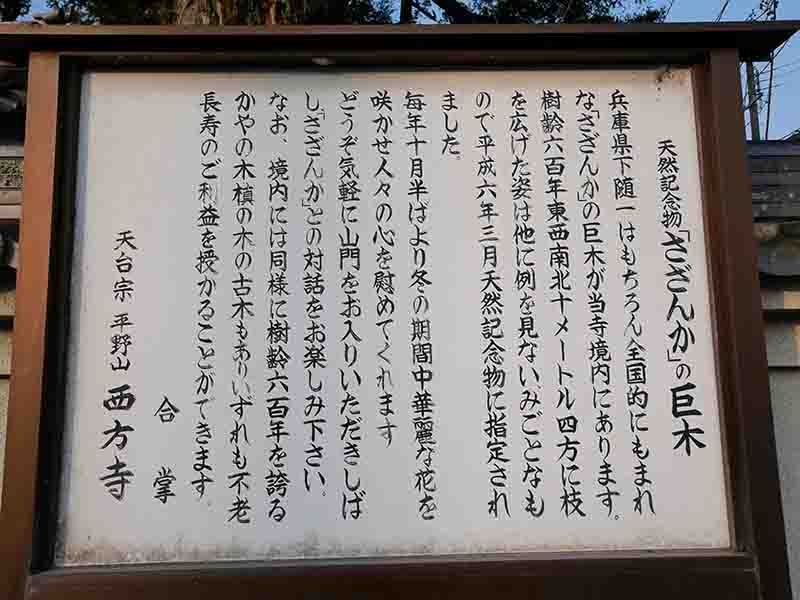 天然記念物「さざんか」の巨木
兵庫県下随一はもちろん全国的にもまれ
な「さざんか」の巨木が当寺境内にあります。
樹齢六百年東西南北十メートル四方に枝
を広げた姿は他に例を見ないみごとなも
ので平成六年三月天然記念物に指定され
ました。
毎年十月半ばより冬の期間中華麗な花を
咲かせ人々の心を慰めてくれます
どうぞ気軽に山門をお入りいただきしば
し「さざんか」との対話をお楽しみ下さい。
なお、境内には同様に樹齢六百年を誇る
かやの木槙の木の古木もありいずれも不老
長寿のご利益を授かることができます。
合掌
天台宗 平野山 西方寺